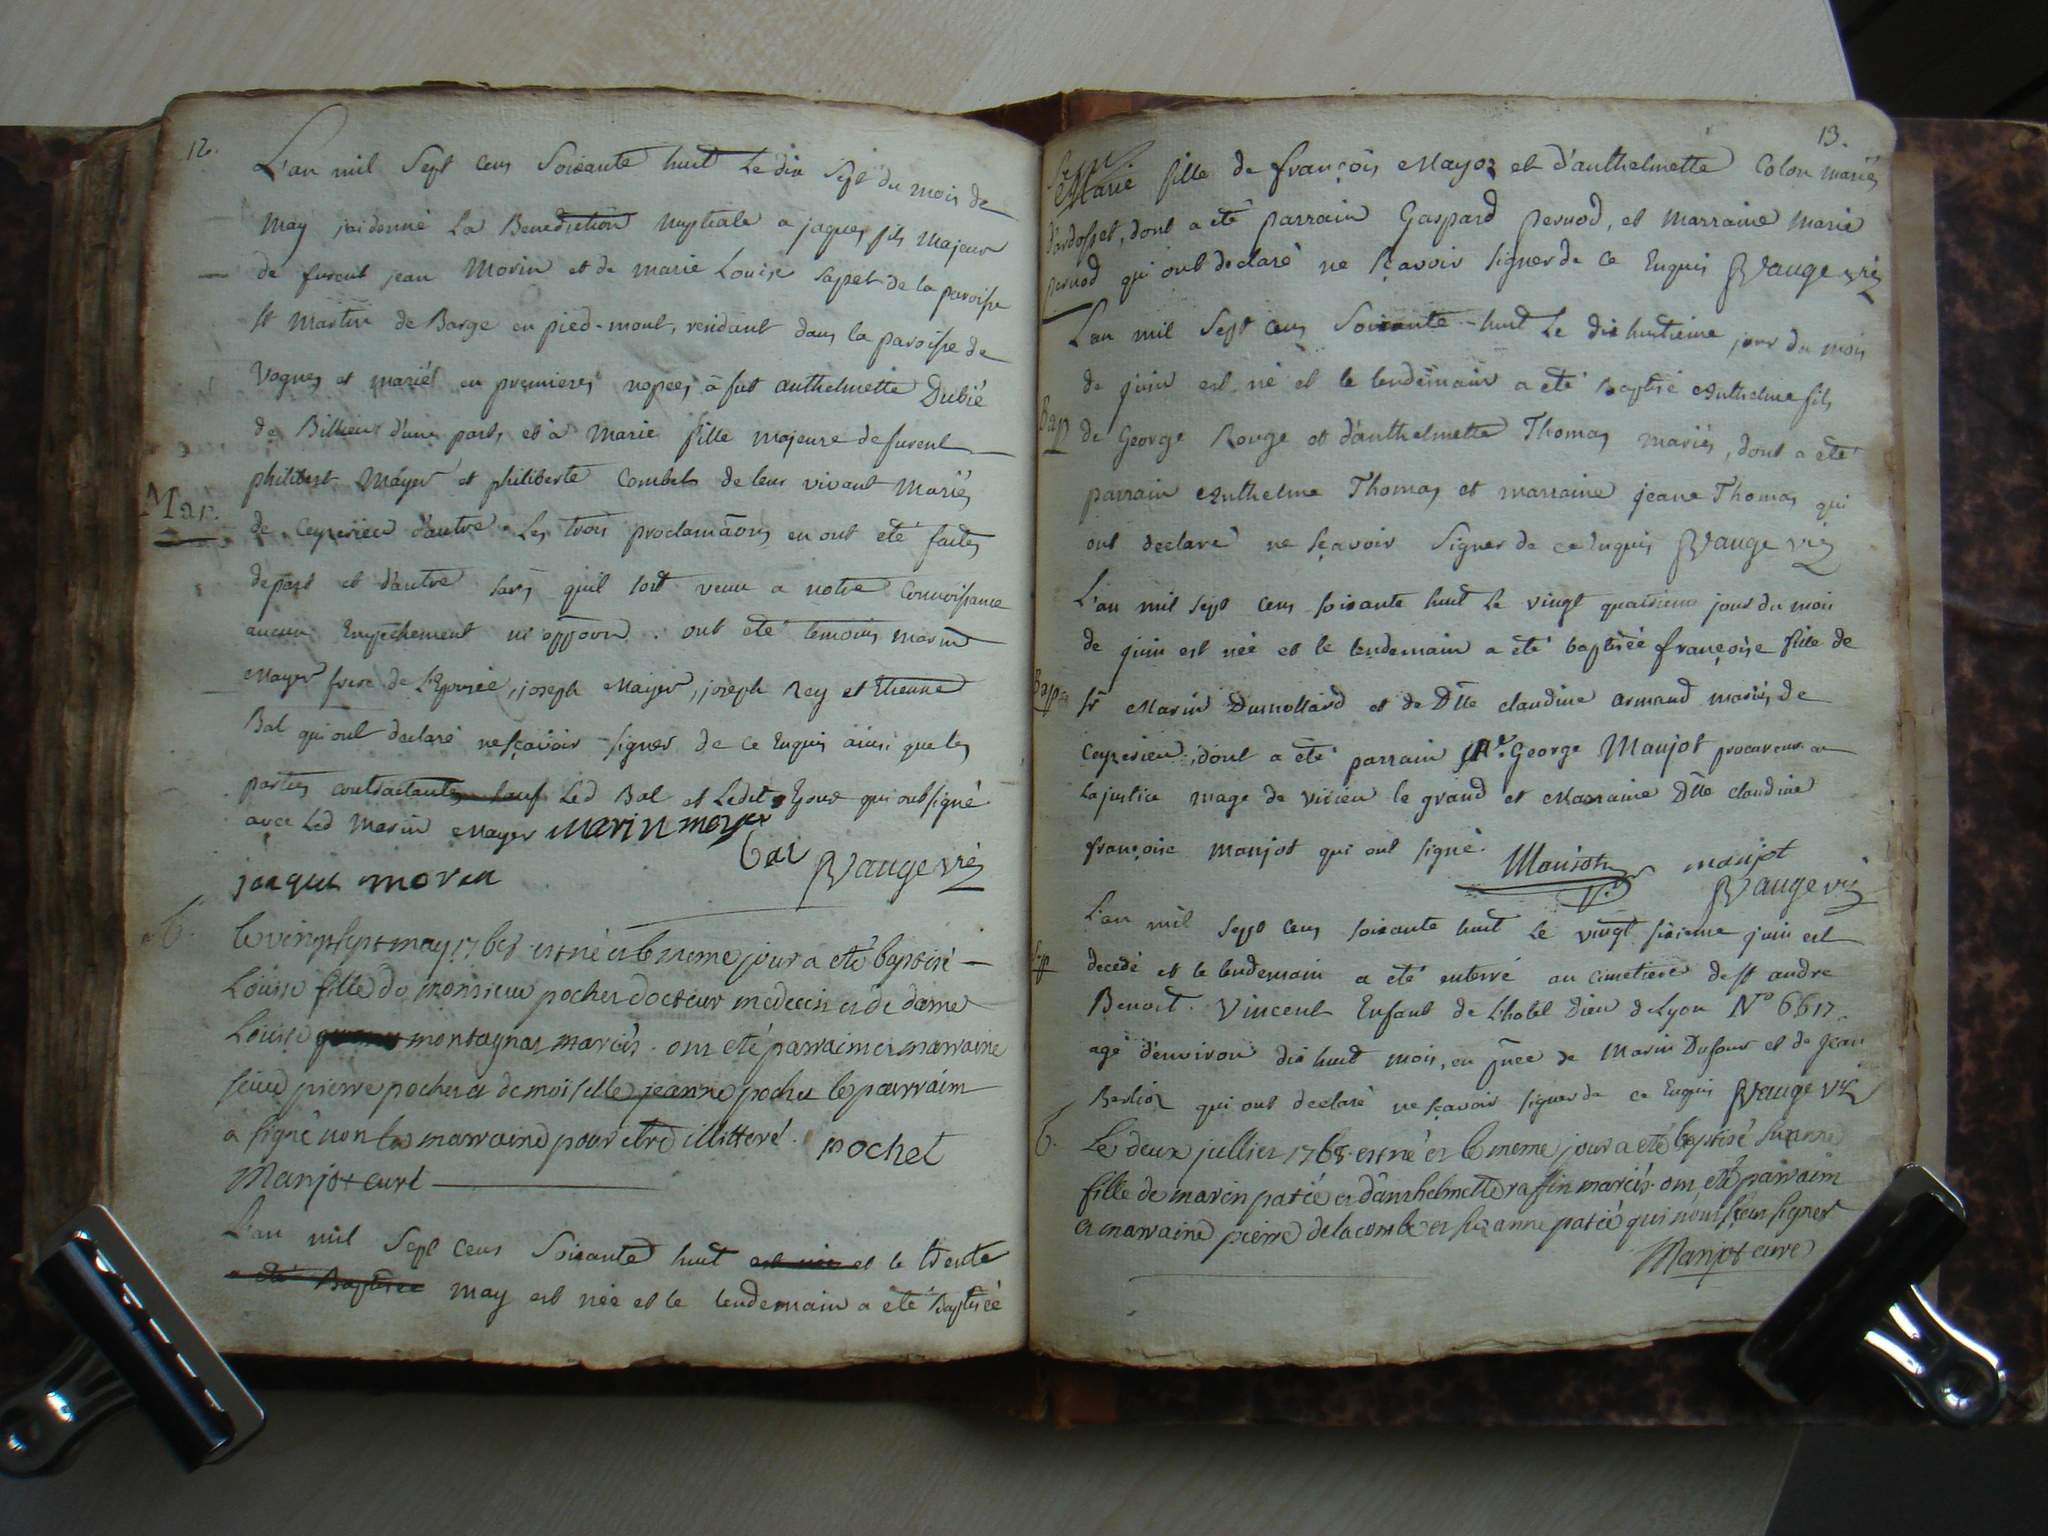 12.
L'an mil Sept cens Soixante huit Le dix Sept du mois de
May j'ai donné La Benediction Nuptiale a jaques fils Majeur
de furent jean Morin et de marie Louise sapet de la paroisse
st Martin de Barge en pied-mont, residant dans la paroisse de
Vognes et mariés en premieres nopces à fut anthelmette Dubié
de Billieu d'une part, et à Marie fille majeure de furent
philibert Mayer et philiberte Combet de leur vivant Mariés
Mar.
de Ceyzerieu d'autre. Les trois proclamaōns en ont eté faites
depart et d'autre sans qu'il soit venu a notre Connoissance
aucun Empechement ni oppōon. ont eté temoins marin
Mayer frere de L'Epousée, joseph Mayer, joseph Rey et Etienne
Bal qui ont declaré ne sçavoir signer de ce Enquis ainsi que les
parties contractantes sauf Led Bal et Ledit Epoux qui ont signé
avec Led Marin Mayer marin mayer
bal
jaques morin
RVauge vic
b.
le vingt sept may 1768 est né et le meme jour a eté baptisé
Louise fille de monsieur pochet docteur medecin et de dame
Louise montagnat mariés. ont eté parraim et marraine
sieur pierre pochet et demoiselle jeanne pochet le parraim
a signé non la marraine pour etre illitteré. pochet
Manjot curé
L'an mil Sept cens Soixante huit est née et le trente
a eté Baptisée may est née et le lendemain a eté Baptisée
13.
Marie fille de françois Mayoz et d'anthelmette Colon mariés
d'ardosset, dont a eté parrain Gaspard pernod, et marraine marie
pernod qui ont declaré ne sçavoir signer de ce Enquis RVauge vic
L'an mil Sept cens Soixante-huit Le dix huitieme jour du mois
de juin est né et le lendemain a eté baptisé Anthelme fils
Bap
de George Rouge et d'anthelmette Thomas mariés, dont a eté
parrain Anthelme Thomas et marraine jeane Thomas qui
ont declaré ne sçavoir signer de ce Enquis RVauge vic
L'an mil sept cens soixante huit Le vingt quatrieme jour du mois
de juin est née et le lendemain a eté baptisée françoise fille de
Bap
sr Marin Dumollard et de Dlle claudine armand mariés de
Ceyzerieu, dont a eté parrain Me. George Manjot procureur en
La justice mage de Virieu le grand et Marraine Dlle claudine
françoise manjot qui ont signé. Manjot manjot
RVauge vic
L'an mil sept cens soixante huit Le vingt sixieme juin est
Sep
decedé et le lendemain a eté enterré au cimetiere de st andre
Benoit Vincent Enfant de L'hotel Dieu de Lyon No 6617.
agé d'environ dix huit mois, en pnce de Marin Dufour et de jean
Berlioz qui ont declaré ne sçavoir signer de ce Enquis RVauge vic
b.
Le deux juillet 1768 est né et le meme jour a eté baptisé suzanne
fille de marin patié et d'anthelmette raffin mariés. ont eté parraim
et marraine pierre delacombe et suzanne patié qui n'ont sçeu signer
Manjot curé